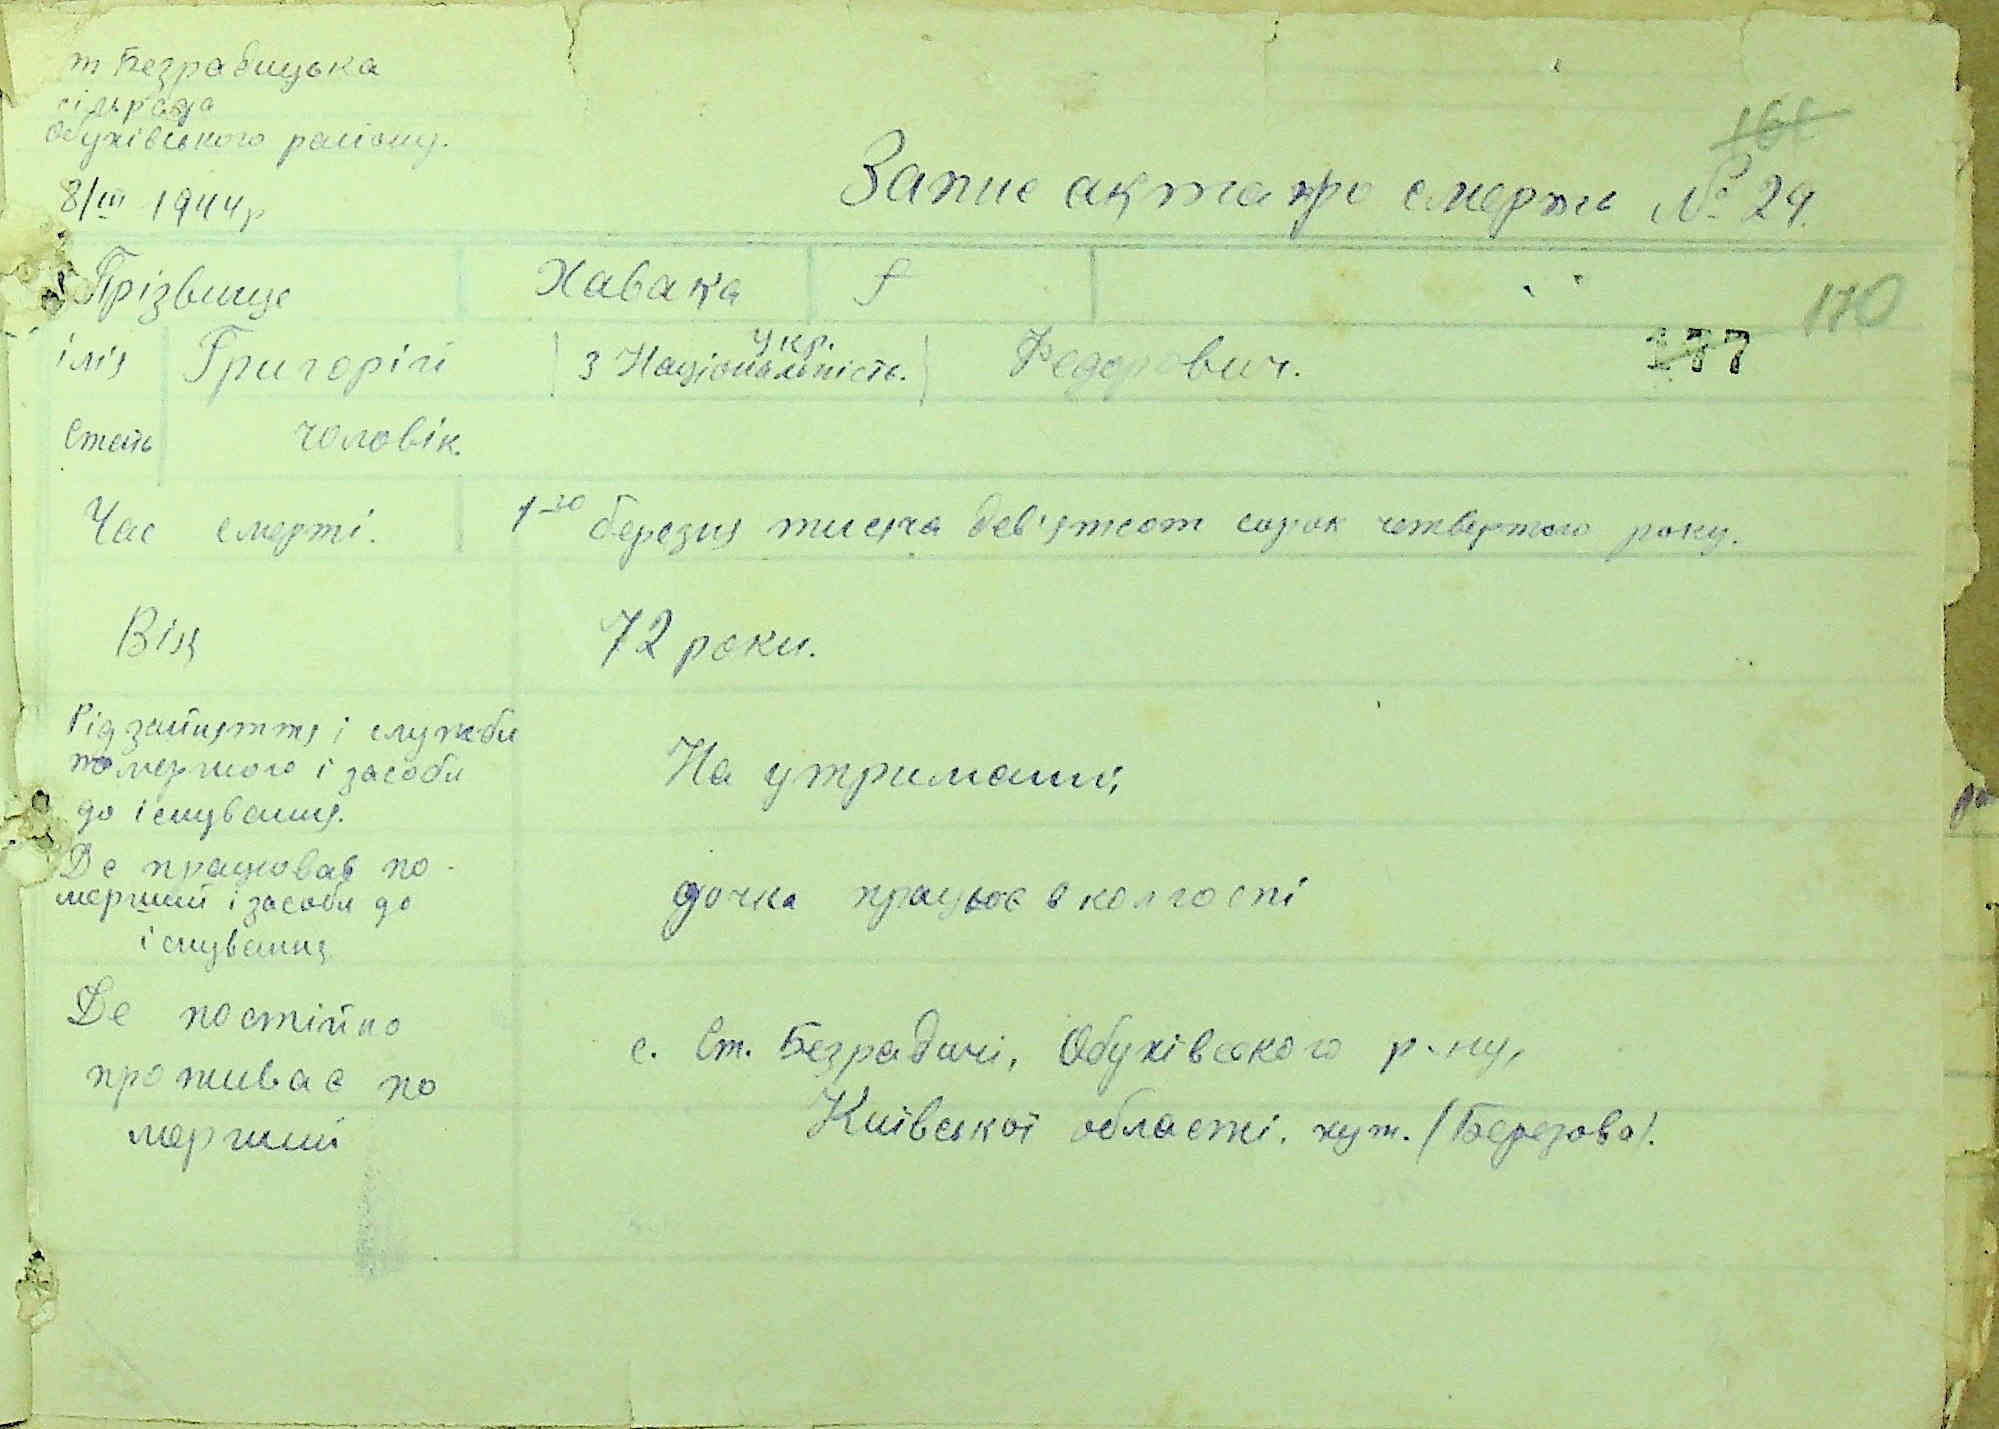 т Безрадицька
сільрада
Обухівського району.
8/III 1944р
161
Запис акта про смерть № 29.
Прізвище Хавака
170
імія Григорій 3 Національність. укр. Федорович. 177
Стать чоловік.
Час смерті. 1-го березня тисяча дев'ятсот сорок четвертого року.
Вік 72 роки.
Рід зайняття і служби
помершого і засоби
до існування.
На утриманні,
Де працював по-
мерший і засоби до
існування
дочка працює в колгоспі
Де постійно
проживає по
мерший
с. Ст. Безрадичі, Обухівського р-ну,
Київської області. хут. (Березово).